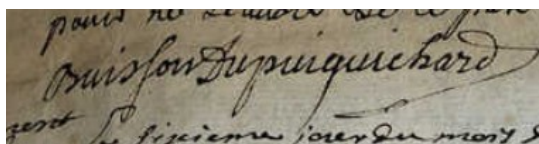 pour ne scavoir de ce
Buisson Dupuiguichard
Le sixieme jour du mois